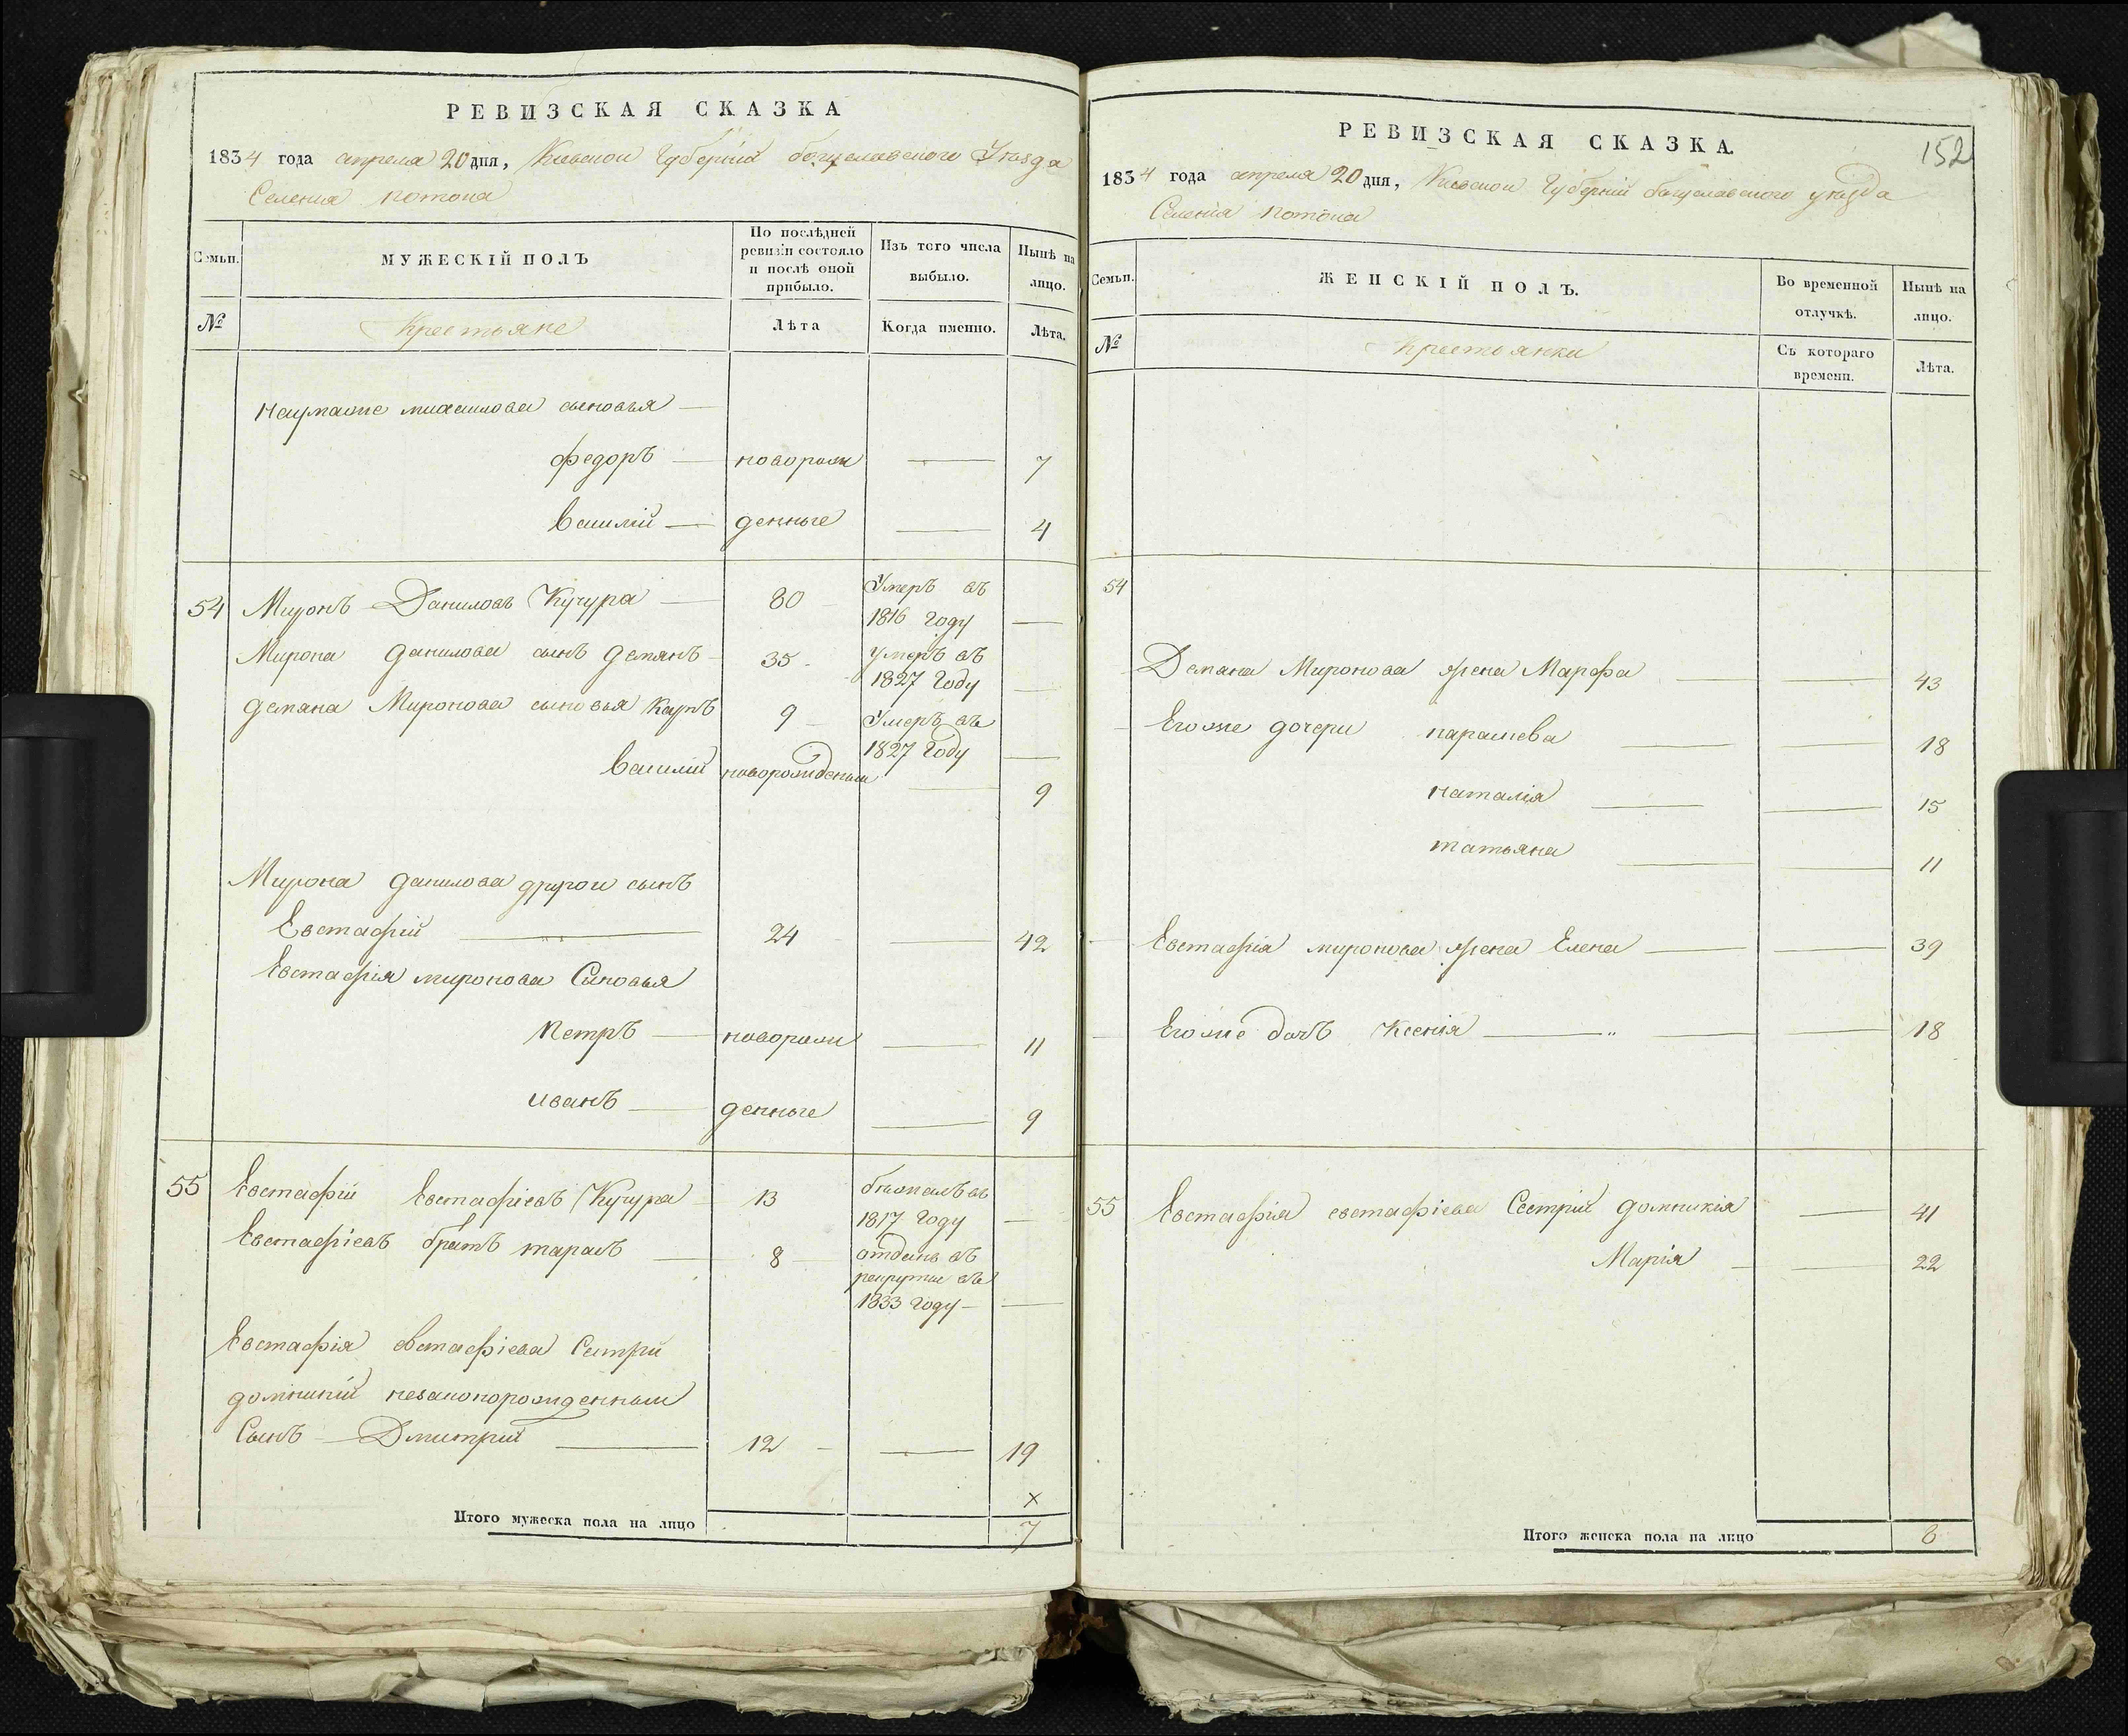 РЕВИЗСКАЯ СКАЗКА
1834 года апреля 20 дня, Киевской Губернии богуславского Уезда
Селения потока
Семьи. МУЖЕСКІЙ ПОЛЪ По послѣдней ревизіи состояло и послѣ оной прибыло. Изъ того числа выбыло. Нынѣ на лицо.
№ Крестьяне Лѣта Когда именно. Лѣта.
Наума оне михаилова сыновья
федоръ новорож 7
василій денные 4
54 Миронъ Даниловъ Кучура 80 Умеръ въ 1816 Году
Мирона данилова сынъ демянъ 35 умеръ въ 1827 Году
демяна Миронова сыновья Карпъ 9 Умеръ въ 1827 Году
василій новорожденый 9
Мирона данилова другой сынъ
Евстафій 24 42
Евстафія миронова Сыновья
Петръ новорож 11
иванъ денные 9
55 Евстафій Евстафіевъ Кучура 13 бежалъ въ 1817 Году
Евстафіевъ братъ тарасъ 8 отданъ въ рекруты въ 1833 Году
Евстафія евстафіева Сестры
домникіи незаконорожденный
Сынъ Дмитрій 12 19
х
Итого мужеска пола на лицо 7
152
РЕВИЗСКАЯ СКАЗКА.
1834 года апреля 20 дня, Киевской Губерніи богуславского уезда
Селенія потока
Семьи. ЖЕНСКІЙ ПОЛЪ. Во временной отлучкѣ. Нынѣ на лицо.
№ Крестьянки Съ котораго времени. Лѣта.
54
Демяна Миронова жена Марфа 43
Его же дочери парасцева 18
наталія 15
татьяна 11
Евстафія миронова жена Елена 39
Его же дочь Ксенія 18
55 Евстафія евстафіева Сестры домникія 41
Марія 22
Итого женска пола на лицо 8